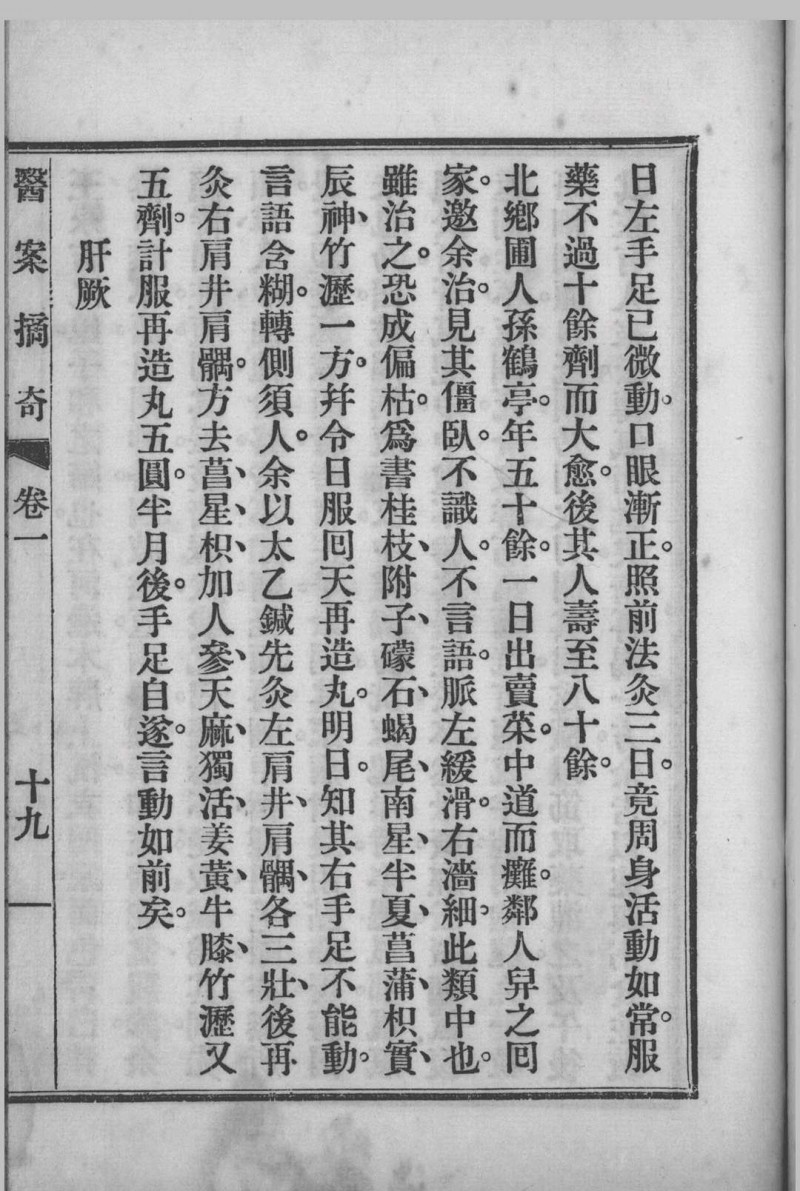 日左手足已微動。口眼漸正。照前法灸三日。竟周身活動如常。服
藥不過十餘劑而大愈。後其人壽至八十餘。
北鄉圃人孫鶴亭。年五十餘。一日出賣菜。中道而癱。鄰人舁之囘
家。邀余治。見其僵臥。不識人。不言語。脈左緩滑。右濇細。此類中也。
雖治之。恐成偏枯。爲書桂枝、附子、礞石、蝎尾、南星、半夏、菖蒲、枳實、
辰神、竹瀝一方。幷令日服囘天再造丸。明日。知其右手足不能動。
言語含糊。轉側須人。余以太乙鍼先灸左肩井、肩髃、各三壯、後再
灸右肩井肩髃。方去菖、星、枳、加人參、天麻、獨活、姜黃、牛膝、竹瀝又
五劑。計服再造丸五圓。半月後。手足自遂。言動如前矣。
肝厥
醫案摘奇 卷一 十九